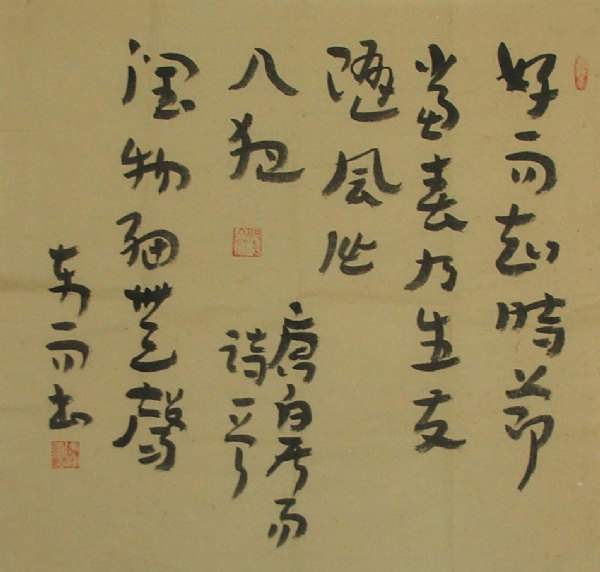 好雨知時節
當春乃生发
隨風
入夜
唐白居易
詩一首
潤物細無聲
东雨书